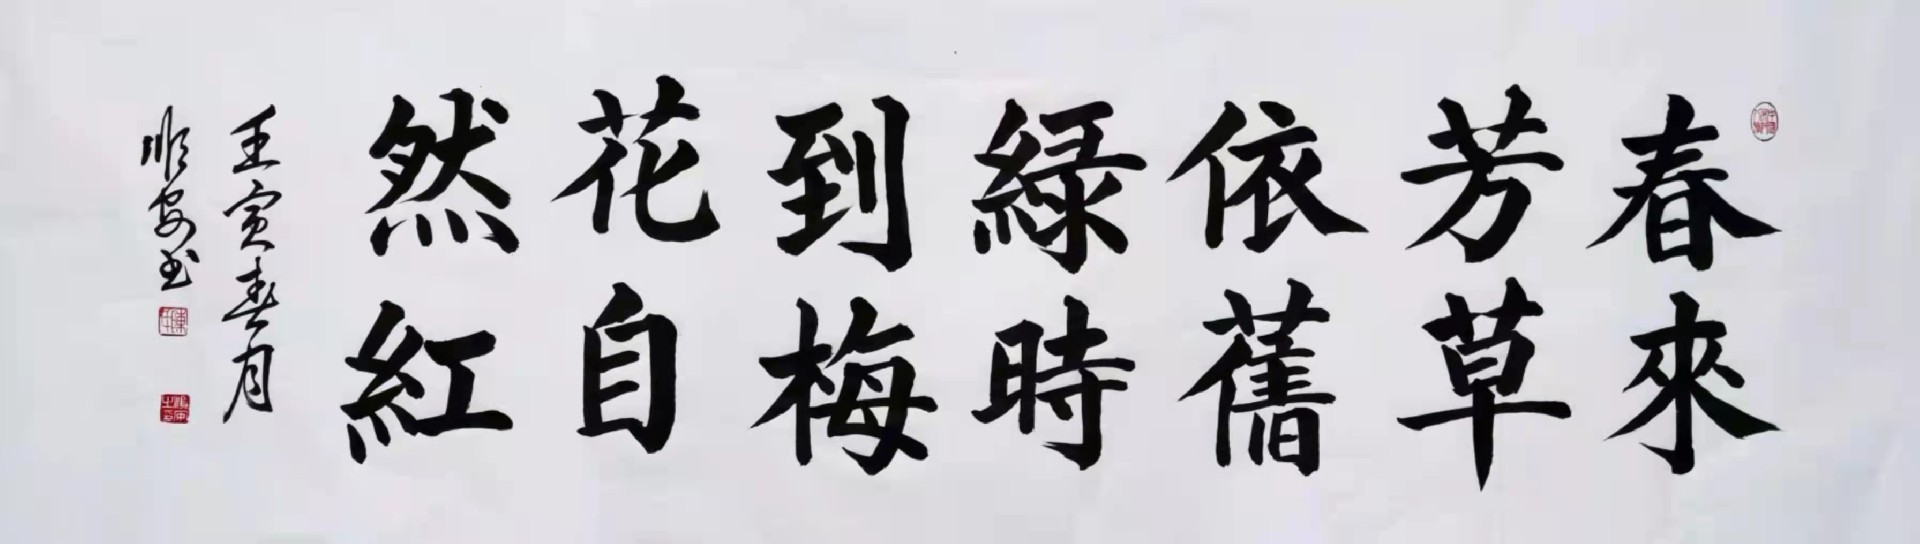 春來
芳草
依舊
綠時
到梅
花自
然紅
壬寅春月
順安书